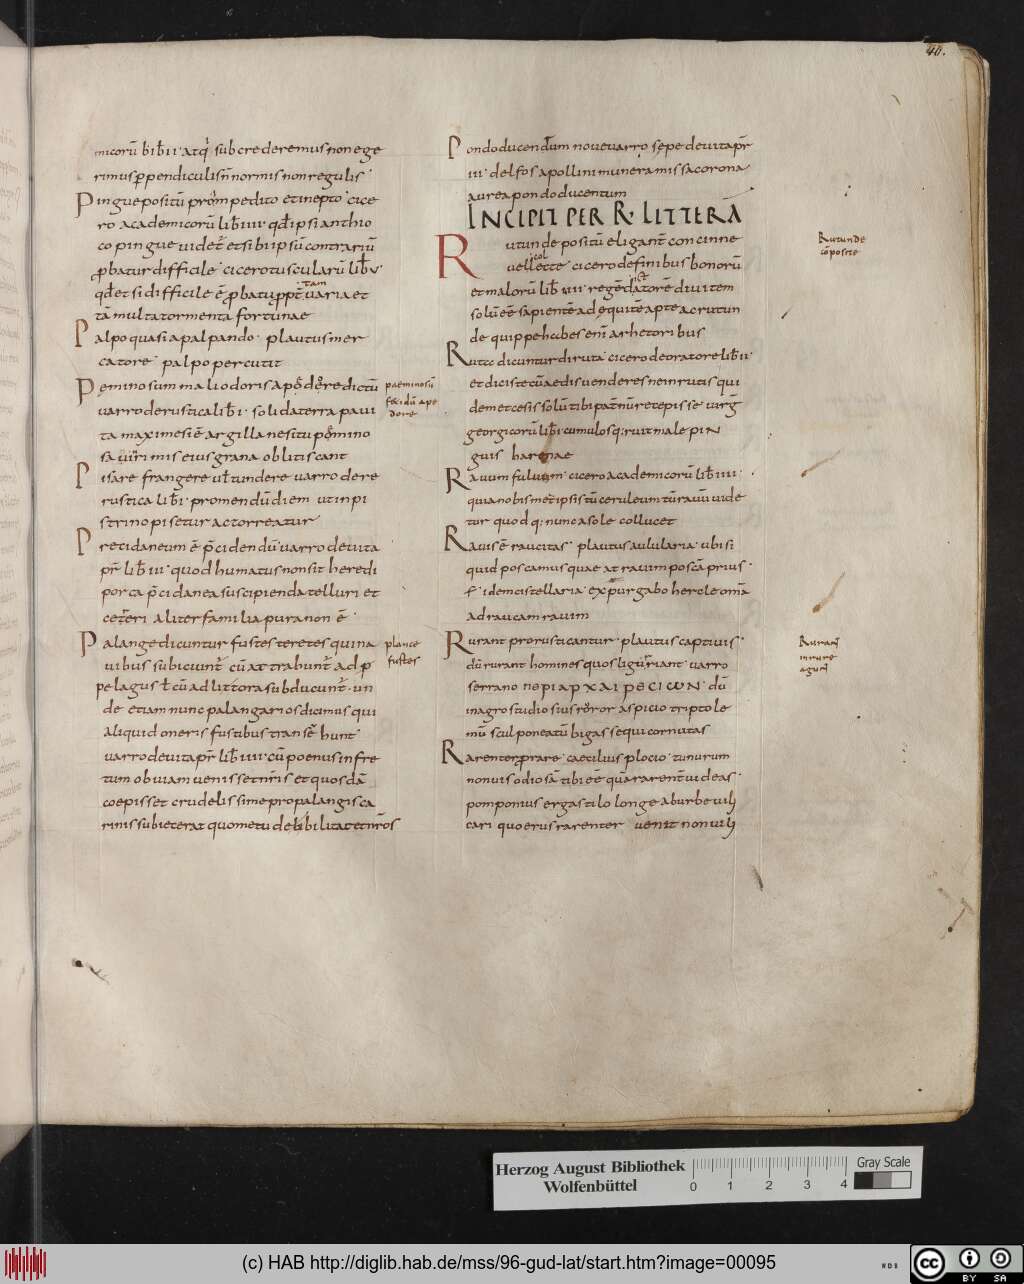 40.
micorū lib̄ ii · atq; sub crederemus non ege
rimus perpendiculis n̄ normis non regulis ·
Pingue positū pro impedito et inepto · cice
ro academicorū lib̄ iiii · qd̄ ipsi anthio
co pingue uidet̄ et si bi ipsū contrariū
ꝓbatur difficile · cicero tuscularū lib̄ v ·
qd̄ et si difficile ē ꝓbatu ꝓpt̄ tam uaria et
tā multa tormenta fortunae
Palpo quasi a palpando · plautus mer
catore · palpo percutit
Pęminosum malio doris a pędore dictū
varro de rustica lib̄ i · soli da terra paui
ta maxime si ē argilla ne situ pęmino
sa
rimis eius grana oblitiscant
Pisare frangere ut̄ tundere varro de re
rustica lib̄ i · promendū diem ut in pi
strino pisetur ac torreatur
Precidaneum ē p̄cidendū varro de uita
pr̄ lib̄ iii · quod humatus non sit heredi
porca p̄cidanea suscipienda telluri et
cet̄eri aliter familia pura non ē ·
Palange dicuntur fustes teretes qui na
uibus subicunt̄ cū at trabunt̄ ad p
pelagus t̄ cū ad littora subducunt̄ · un
de etiam nunc palangarios dicimus qui
aliquid oneris fustibus transe hunt
varro de uita pr̄ lib̄ iiii · cū poenus in fre
tum obuiam uenisset nr̄is et quos dā
coepisset crudelissime pro palangis ca
rinis subieterat quo metu debilitaret nr̄os
paeminosū
fetidū a pe
dore
plance
fustes
Pondo ducendum noue varro sepe de uita pr̄
iii · delfos apollini munera missa corona
aurea pondo ducentum
INCIPIT PER R · LITTERĀ
Rutunde positū eligant̄ concinne
uel lecte col · cicero de finibus bonorū
et malorū lib̄ iiii · rege dictatore diuitem
solū eē sapientē ad ę quite apte ac rutun
de quippe habes enī a rhetoribus
Ruta dicuntur diruta cicero de oratore lib̄ ii ·
et dicis te cū aedis uenderes ne in rutis qui
dem et cesis solū tibi pat̄nū recepisse uirḡ
georgicorū lib̄ i cumulosq; ruit male pin
guis harenae
Rauum fuluum · cicero academicorū lib̄ iiii ·
quia nobismet ipsis tū ceruleum tū rauū uide
tur quodq; nunc a sole collucet
Rauis ē raucitas · plautus aulularia · ubi si
quid poscamus quae at rauim poscā prius ·
r̄ · idem cistellaria · expurgabo hercle omīa
ad raucam rauim
Rurant pro rusticantur · plautus captiuis ·
dū rurant homines quos ligurriant varro
serrano περιαρχαιρεσιων · dū
in agro studiosius ruror aspicio tripto le
mū sculponeatū bigas sequi cornutas
Rarenter ꝓ rare · caecilius plocio · tu nurum
non uis odiosā tibi eē quā rarent̄ uideas ·
pomponius ergastilo longe ab urbe uili
cari quo erus rarenter uenit non uili
Rutunde
cōposite
Rurant
in rure
agunt
Herzog August Bibliothek
Wolfenbüttel
0 1 2 3 4
Gray Scale
(c) HAB http://diglib.hab.de/mss/96-gud-lat/start.htm?image=00095
WDB
cc BY SA